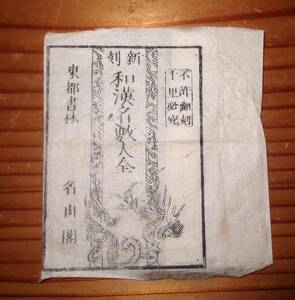 不許翻刻
千里必究
新刻
和漢名数大全
東都書林 名山閣